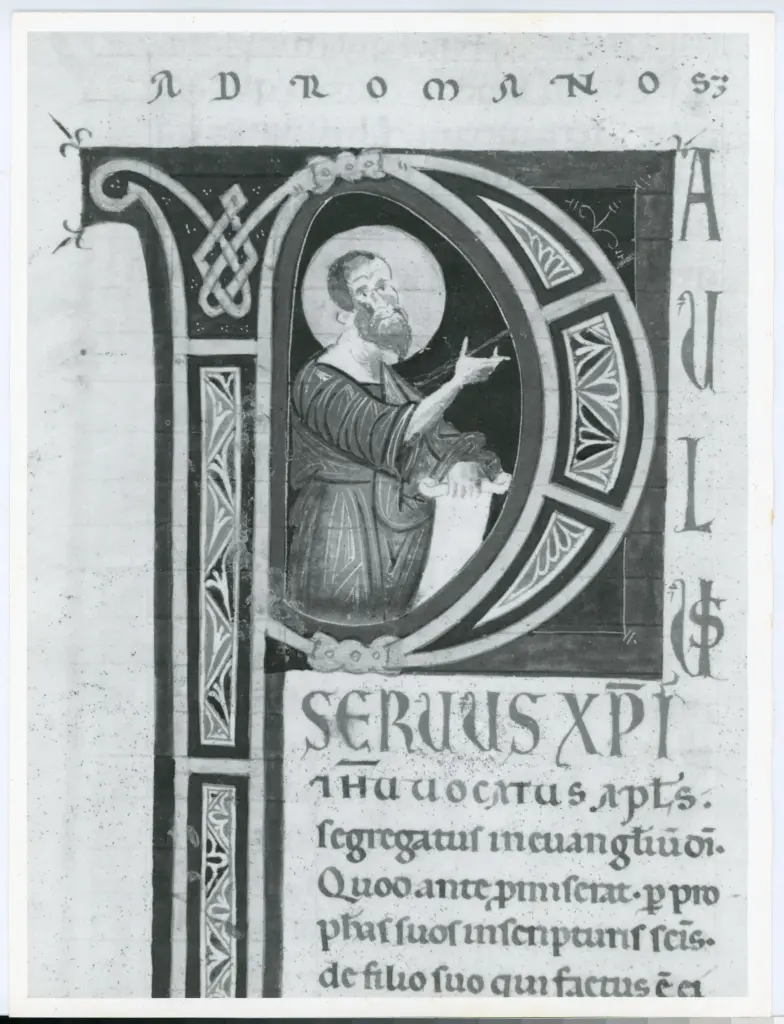 AD ROMANOS;
PAULUS
SERVUS XP̄I
IH̄U UOCATUS APŁS.
segregatus in euangłiū dī.
Quod ante p̱miserat. ꝑ pro
ph̄as suos in scripturis scīs.
de filio suo qui factus ē ei